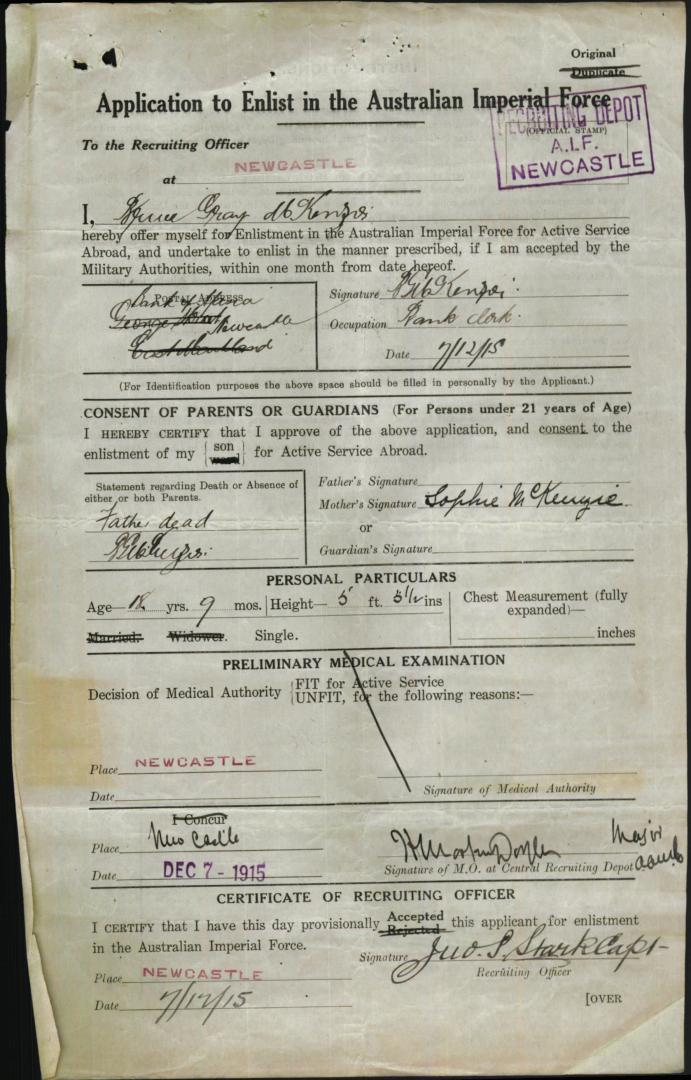 Original
Duplicate
Application to Enlist in the Australian Imperial Force
(OFFICIAL STAMP)
RECRUITING DEPOT
A.I.F.
NEWCASTLE
To the Recruiting Officer
at NEWCASTLE
I, Bruce Gray McKenzie
hereby offer myself for Enlistment in the Australian Imperial Force for Active Service
Abroad, and undertake to enlist in the manner prescribed, if I am accepted by the
Military Authorities, within one month from date hereof.
POSTAL ADDRESS
Bank of
George Street Newcastle
East Maitland
Signature McKenzie
Occupation Bank clerk.
Date 7/12/15
(For Identification purposes the above space should be filled in personally by the Applicant.)
CONSENT OF PARENTS OR GUARDIANS (For Persons under 21 years of Age)
I HEREBY CERTIFY that I approve of the above application, and consent to the
enlistment of my { son ward } for Active Service Abroad.
Statement regarding Death or Absence of
either or both Parents.
Father dead
Father's Signature
Mother's Signature Sophie McKenzie
or
Guardian's Signature
PERSONAL PARTICULARS
Age—18 yrs. 9 mos. Height— 5 ft. 5½ ins
Chest Measurement (fully
expanded)—
inches
Married. Widower. Single.
PRELIMINARY MEDICAL EXAMINATION
Decision of Medical Authority { FIT for Active Service
UNFIT, for the following reasons:—
Place NEWCASTLE
Date
Signature of Medical Authority
I Concur
Place Newcastle
Date DEC 7 - 1915
Major
Signature of M.O. at Central Recruiting Depot aamc
CERTIFICATE OF RECRUITING OFFICER
I CERTIFY that I have this day provisionally Accepted Rejected this applicant for enlistment
in the Australian Imperial Force.
Signature Jno. S. Stark Capt
Recruiting Officer
Place NEWCASTLE
Date 7/12/15
[OVER